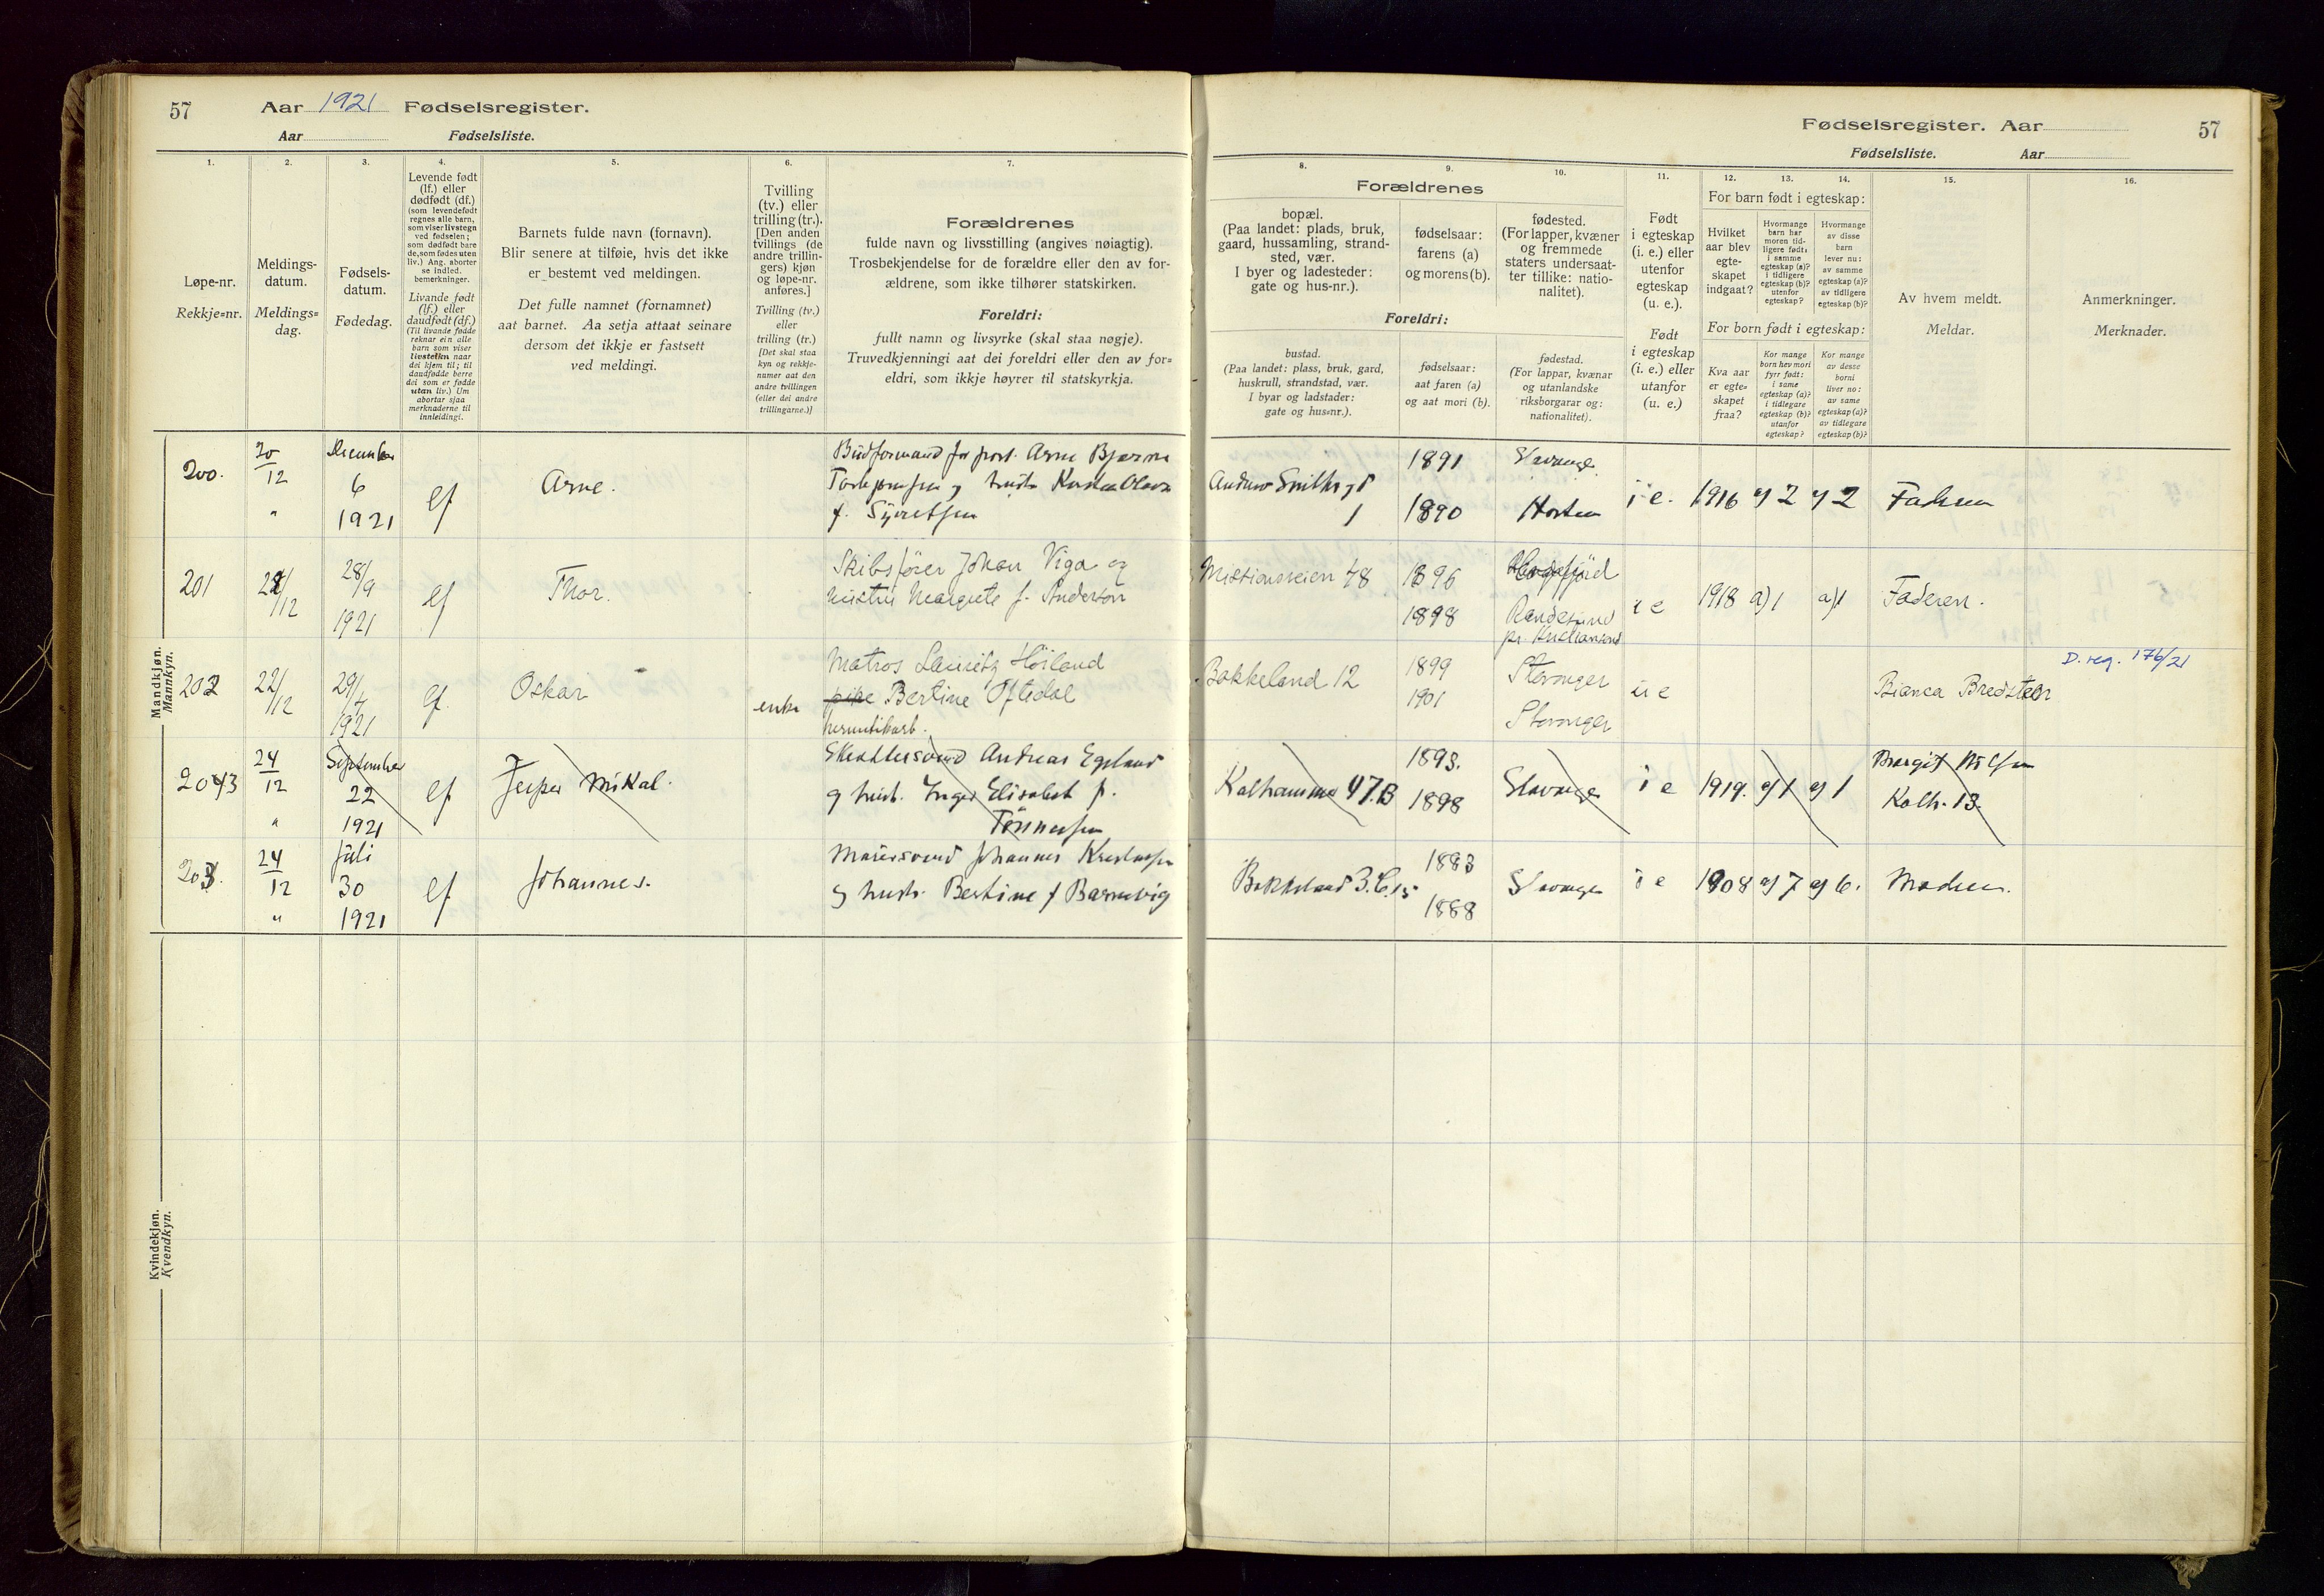 57 Aar 1921 Fødselsregister.
Aar Fødselsliste.
1.
Løpe-nr.
Rekkje=nr.
2.
Meldings-
datum.
Meldings=
dag.
3.
Fødsels-
datum.
Fødedag.
4.
Levende født
(lf.) eller
dødfødt (df.)
(som levendefødt
regnes alle barn,
som viser livstegn
ved fødselen;
som dødfødt bare
de, som fødes uten
liv.) Ang. aborter
se indled.
bemerkninger.
Livande født
(lf.) eller
daudfødt (df.)
(Til livande fødde
reknar ein alle
barn som viser
livsteikn naar
dei kjem til; til
daudfødde berre
dei som er fødde
utan liv.) Um
abortar sjaa
merknaderne til
innleidingi.
5.
Barnets fulde navn (fornavn).
Blir senere at tilføie, hvis det ikke
er bestemt ved meldingen.
Det fulle namnet (fornamnet)
aat barnet. Aa setja attaat seinare
dersom det ikkje er fastsett
ved meldingi.
6.
Tvilling
(tv.) eller
trilling (tr.).
[Den anden
tvillings (de
andre trillin-
gers) kjøn
og løpe-nr.
anføres.]
Tvilling (tv.)
eller
trilling (tr.)
[Det skal staa
kyn og rekkje-
numer aat den
andre tvillingen
(eller dei andre
trillingarne.)]
7.
Forældrenes
fulde navn og livsstilling (angives nøiagtig).
Trosbekjendelse for de forældre eller den av for-
ældrene, som ikke tilhører statskirken.
Foreldri:
fullt namn og livsyrke (skal staa nøgje).
Truvedkjenningi aat dei foreldri eller den av for=
eldri, som ikkje høyrer til statskyrkja.
Fødselsregister. Aar 57
Fødselsliste. Aar
8.
Forældrenes
bopæl.
(Paa landet: plads, bruk,
gaard, hussamling, strand-
sted, vær.
I byer og ladesteder:
gate og hus-nr.).
Foreldri:
bustad.
(Paa landet: plass, bruk, gard,
huskrull, strandstad, vær.
I byar og ladstader:
gate og hus=nr.).
9.
fødselsaar:
farens (a)
og morens (b).
fødselsaar:
aat faren (a)
og aat mori (b).
10.
fødested.
(For lapper, kvæner
og fremmede
staters undersaat-
ter tillike: natio-
nalitet).
fødestad.
(For lappar, kvænar
og utanlandske
riksborgarar og:
nationalitet).
11.
Født
i egteskap
(i. e.) eller
utenfor
egteskap
(u. e.).
Født
i egteskap
(i. e.) eller
utanfor
(u. e.)
For barn født i egteskap:
12.
Hvilket
aar blev
egte-
skapet
indgaat?
13.
Hvormange
barn har
moren tid-
ligere født:
i samme
egteskap (a)?
i tidligere
egteskap (b)?
utenfor
egteskap?
14.
Hvormange
av disse
barn
lever nu:
av samme
egteskap (a)?
av tidligere
egteskap (b)?
For born født i egteskap:
Kva aar
er egte=
skapet
fraa?
Kor mange
born hev mori
fyrr født:
i same
egteskap (a)?
i tidlegare
egteskap (b)?
utanfor
egteskap?
Kor mange
av desse
borni
liver no:
av same
egteskap (a)?
av tidlegare
egteskap (b)?
15.
Av hvem meldt.
Meldar.
16.
Anmerkninger.
Merknader.
Mandkjøn.
Mannkyn.
200. 20/12 " December 6 1921 lf Arne.
Budformand for post. Arne Bjarne
Torbjørnsen og hustr Kirsten Olava
f. Sivertsen
1 1891 1890 Stavanger Horten i e. 1916 a) 2 a) 2 Faderen
201 22/12 28/9 1921 lf Thor.
Skibsfører Johan Viga og
hustru Margrete f. Anderson
Missionsveien 48 1896 1898 Randesund pr. Kristiansand i e 1918 a) 1 a) 1 Faderen.
202 22/12 1921 lf. Oskar
Matros Lauritz Höiland
enke pike Bertine Oftedal
hermetikarb.
Bakkeland 12 1899 1901 Stavanger Stavanger u e Bianca Bredsteen D. reg. 176/21
203 24/12 " September 22 1921 lf Jesper Mikal.
Andreas Egeland
og hustr. Inger Elisabet f.
Tönnesen
Kalhammer 47.B 1893. 1898 Stavanger i e 1919. a) 1 a) 1 Borgit Nilsen Kalh. 13.
203. 24/12 " Juli 30 1921 lf Johannes.
Malersvend Johannes Kristensen
og hustr. Bertine f Barnevig
Bakkeland 1883 1888 Stavanger i e 1908 a) 7 a) 6. Moderen.
Kvindekjøn.
Kvendkyn.